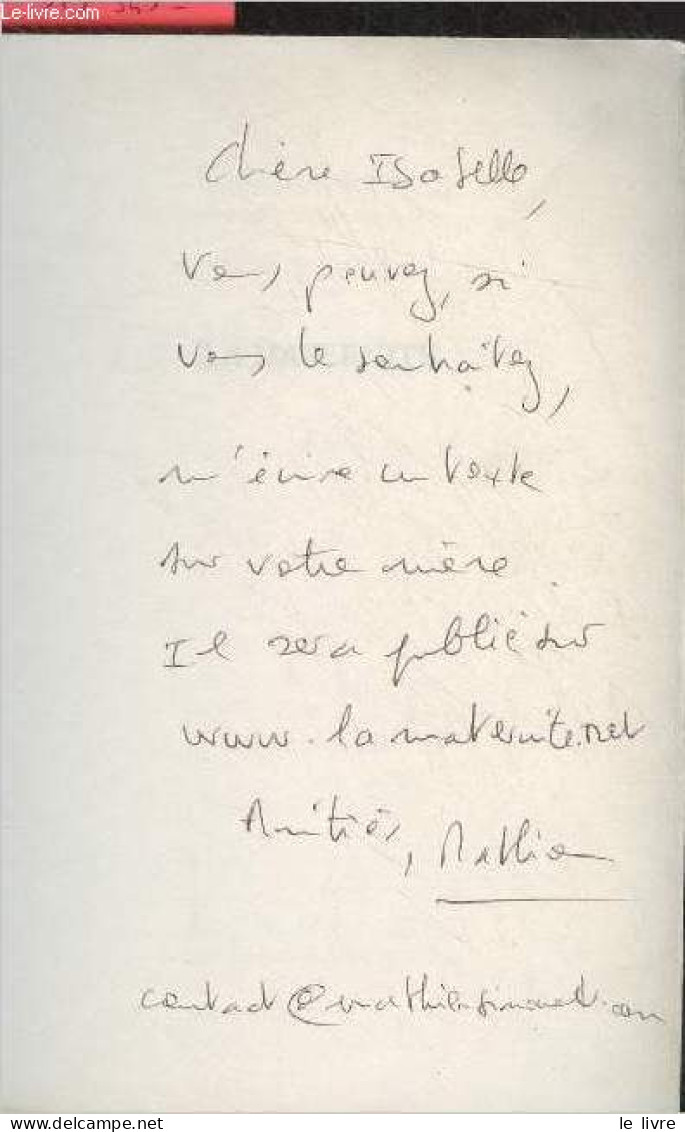 Le-livre.com
Chère Isabelle,
vous pouvez, si
vous le souhaitez,
m'écrire un texte
sur votre mère.
Il sera publié sur
www.lamaternite.net
Amitiés, Mathieu
contact@mathieusimonet.com
le livre